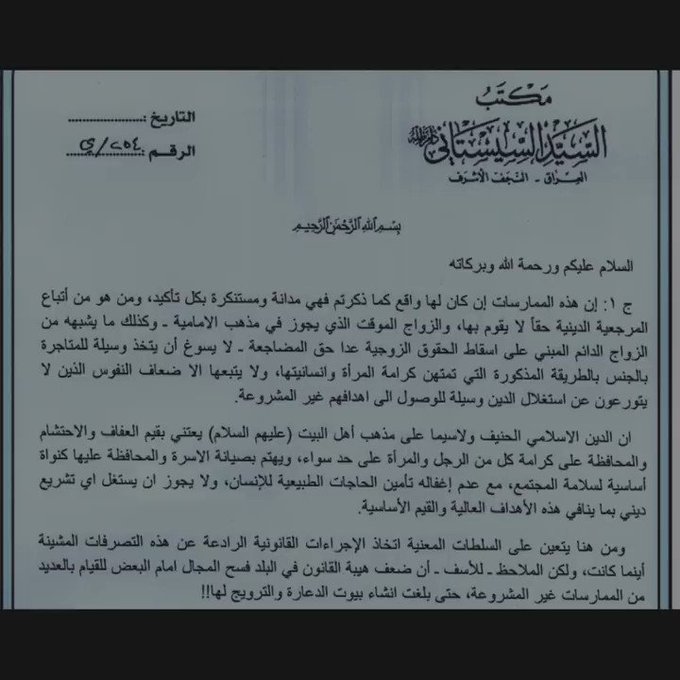 مكتب
السيد السيستاني دام ظله
العراق - النجف الأشرف
التاريخ :......................
الرقم :...............
بسم الله الرحمن الرحيم
السلام عليكم ورحمة الله وبركاته
ج ١: إن هذه الممارسات إن كان لها واقع كما ذكرتم فهي مدانة ومستنكرة بكل تأكيد، ومن هو من أتباع
المرجعية الدينية حقاً لا يقوم بها، والزواج الموقت الذي يجوز في مذهب الامامية ـ وكذلك ما يشبهه من
الزواج الدائم المبني على اسقاط الحقوق الزوجية عدا حق المضاجعة ـ لا يسوغ أن يتخذ وسيلة للمتاجرة
بالجنس بالطريقة المذكورة التي تمتهن كرامة المرأة وانسانيتها، ولا يتبعها الا ضعاف النفوس الذين لا
يتورعون عن استغلال الدين وسيلة للوصول الى اهدافهم غير المشروعة.
ان الدين الاسلامي الحنيف ولاسيما على مذهب أهل البيت (عليهم السلام) يعتني بقيم العفاف والاحتشام
والمحافظة على كرامة كل من الرجل والمرأة على حد سواء، ويهتم بصيانة الاسرة والمحافظة عليها كنواة
أساسية لسلامة المجتمع، مع عدم إغفاله تأمين الحاجات الطبيعية للإنسان، ولا يجوز ان يستغل اي تشريع
ديني بما ينافي هذه الأهداف العالية والقيم الأساسية.
ومن هنا يتعين على السلطات المعنية اتخاذ الإجراءات القانونية الرادعة عن هذه التصرفات المشينة
أينما كانت، ولكن الملاحظ ـ للأسف ـ أن ضعف هيبة القانون في البلد فسح المجال امام البعض للقيام بالعديد
من الممارسات غير المشروعة، حتى بلغت انشاء بيوت الدعارة والترويج لها!!